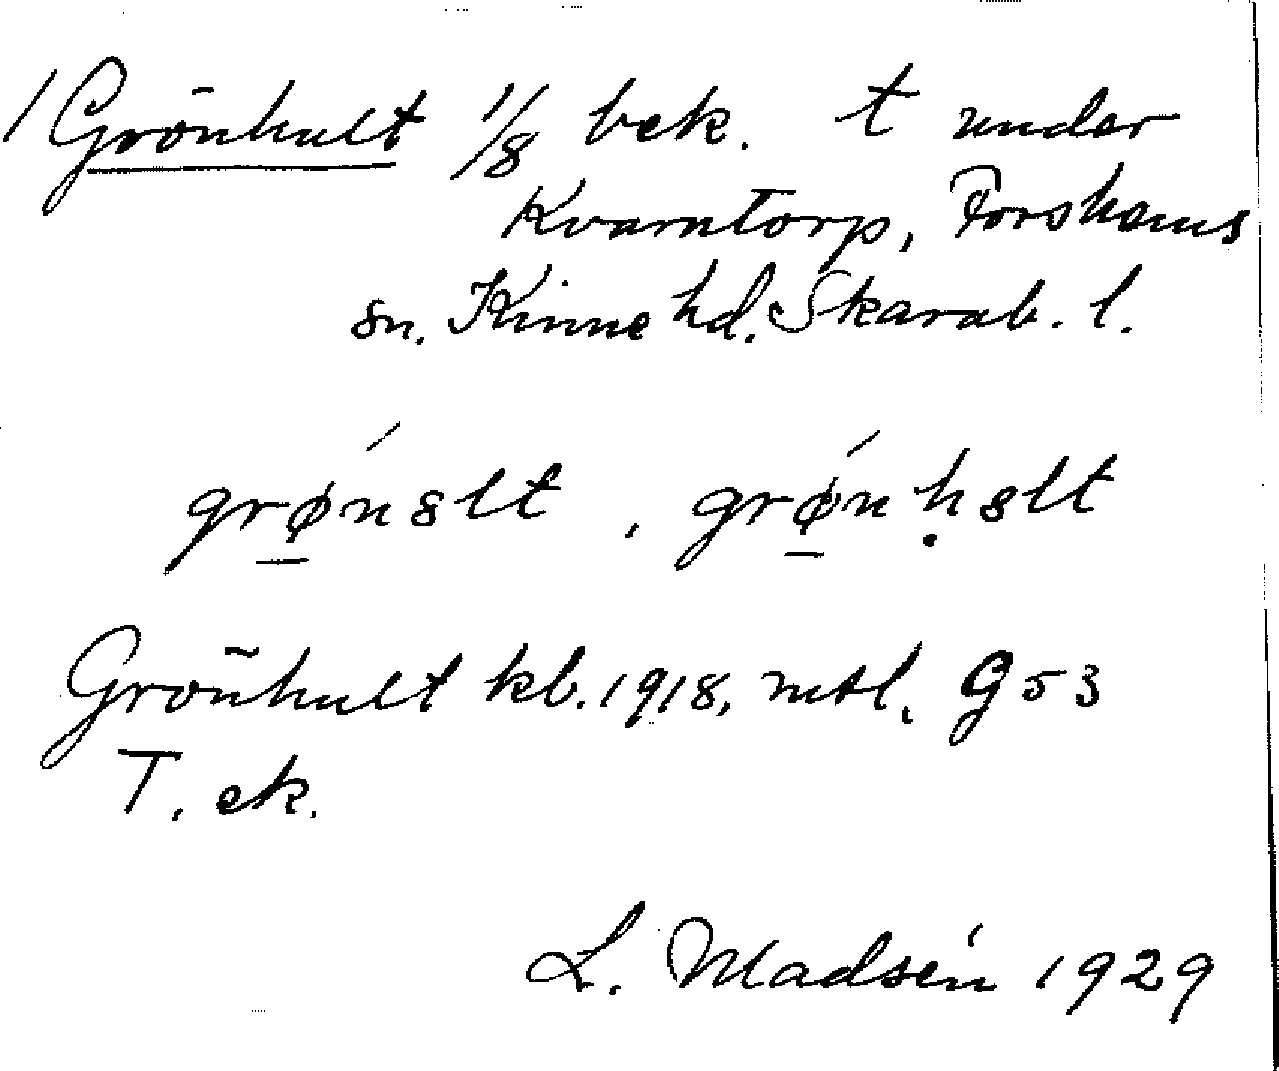 / Grönhult 1/8 bek. t under
Kvarntorp, Forshems
sn. Kinne hd. Skarab. l.
grø̲nslt , grø̲nḥslt
Grönhult kb. 1918, mtl. G53
T. ek.
L. Madsén 1929